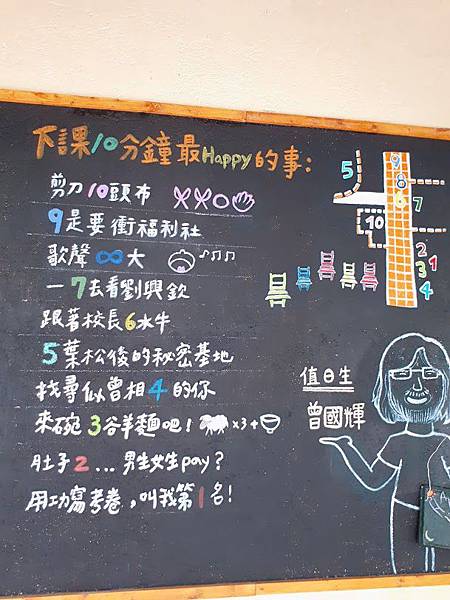 下課10分鐘最Happy的事：
剪刀10頭布
9是要衝福利社
歌聲∞大
一7去看劉興欽
跟著校長6水牛
5葉松後的秘密基地
找尋似曾相4的你
來碗3谷羊麵吧！x3+
肚子2...男生女生pay？
用功寫考卷，叫我第1名！
5
9
8
6
7
10
2
1
3
4
值日生
曾國輝